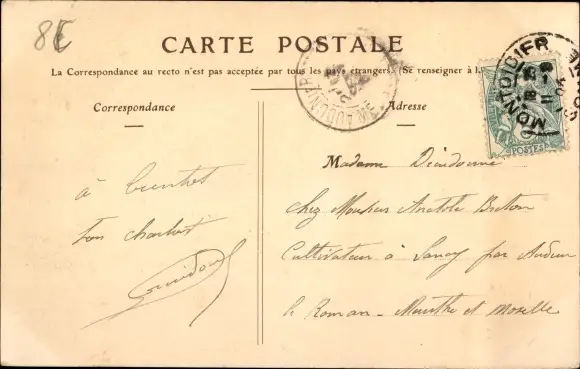 8E
CARTE POSTALE
La Correspondance au recto n'est pas acceptée par tous les pays étrangers. (Se renseigner à l
Correspondance
Adresse
MONTDIDIER
SOMME
AUDUN
POSTES
Madame Dieudonné
chez Monsieur Anatole Breton
Cultivateur à Sancy par Audun
le Roman - Meurthe et Moselle
à bientôt